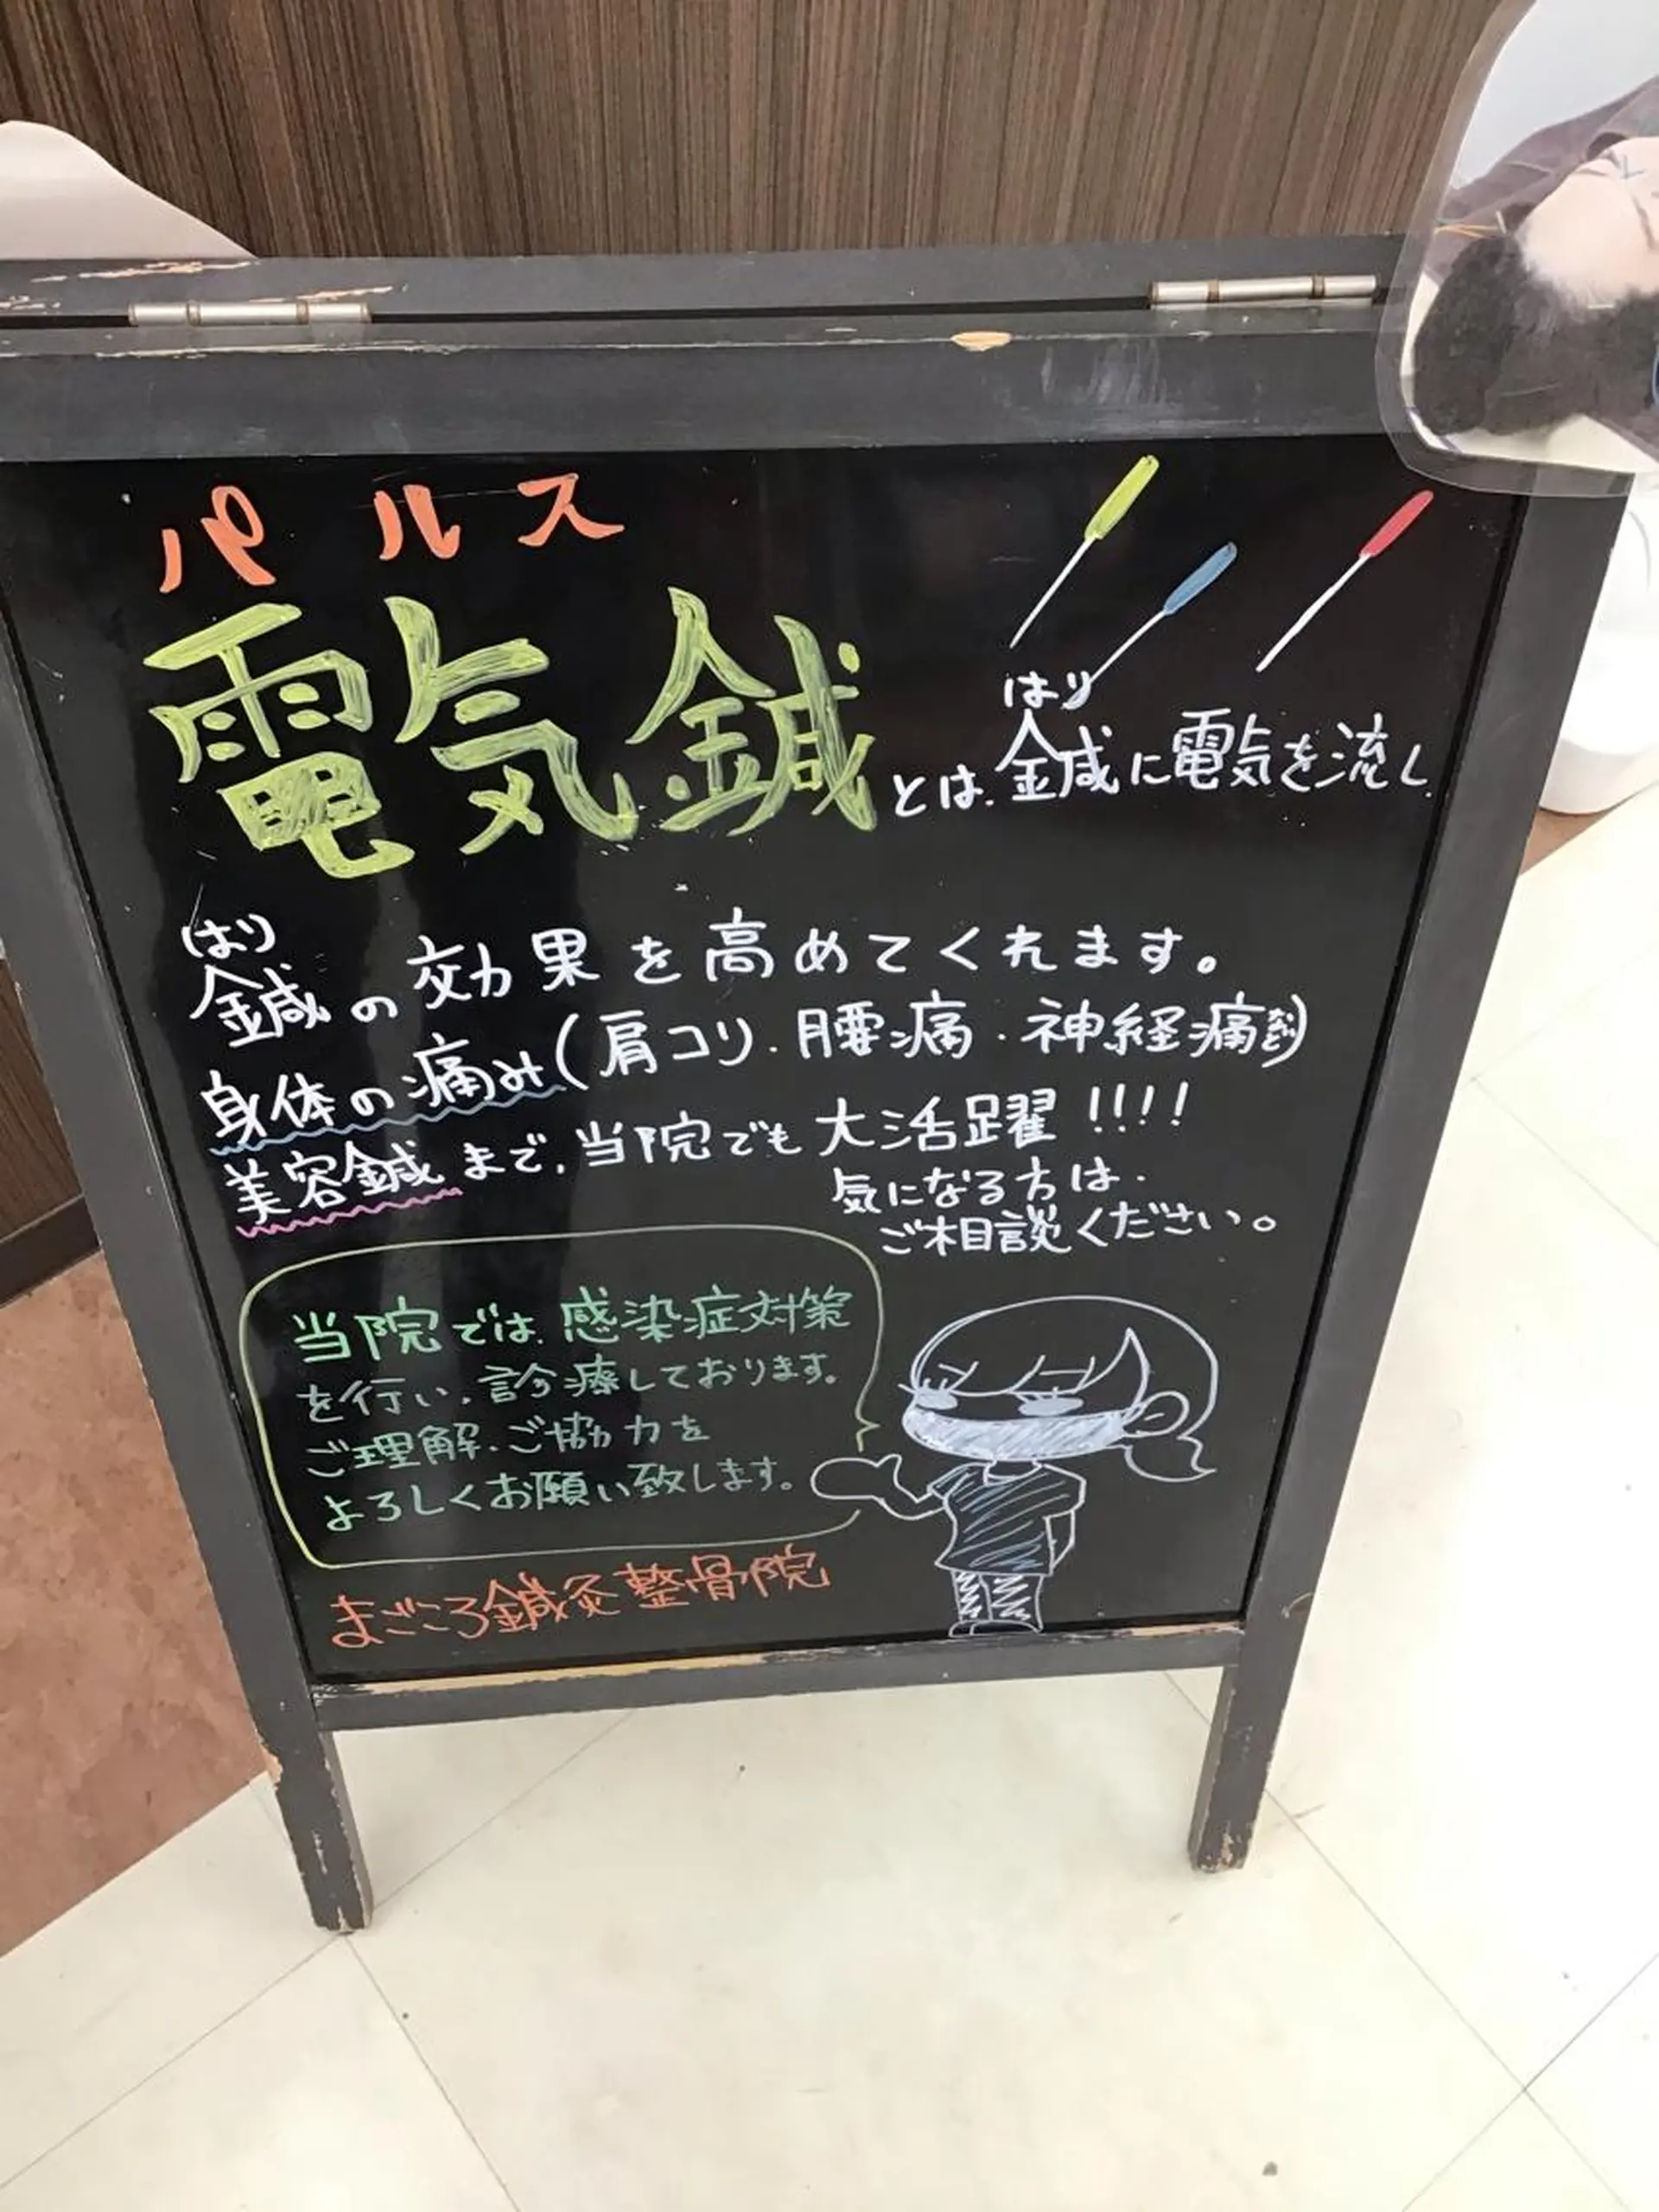 パルス
電気鍼とは、鍼に電気を流し、
はり
はり
鍼の効果を高めてくれます。
身体の痛み(肩コリ・腰痛・神経痛など)
美容鍼まで、当院でも大活躍!!!!
気になる方は、
ご相談ください。
当院では、感染症対策
を行い、診療しております。
ご理解・ご協力を
よろしくお願い致します。
まごころ鍼灸整骨院